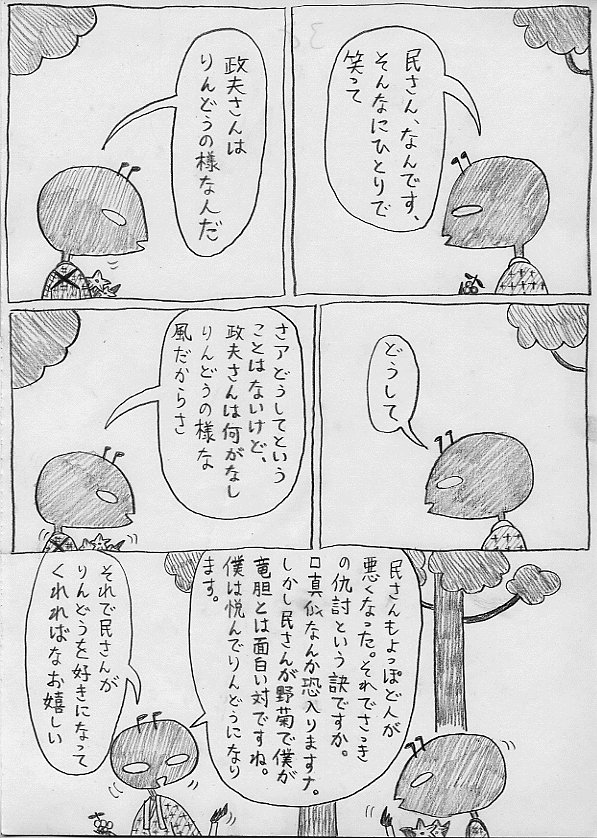 民さん、なんです、
そんなにひとりで
笑って
政夫さんは
りんどうの様なんだ
どうして
さアどうしてという
ことはないけど、
政夫さんは何がなし
りんどうの様な
風だからさ
民さんもよっぽど人が
悪くなった。それでさっき
の仇討という訣ですか。
口真似なんか恐入りますナ。
しかし民さんが野菊で僕が
竜胆とは面白い対ですね。
僕は悦んでりんどうになり
ます。
それで民さんが
りんどうを好きになって
くれればなお嬉しい